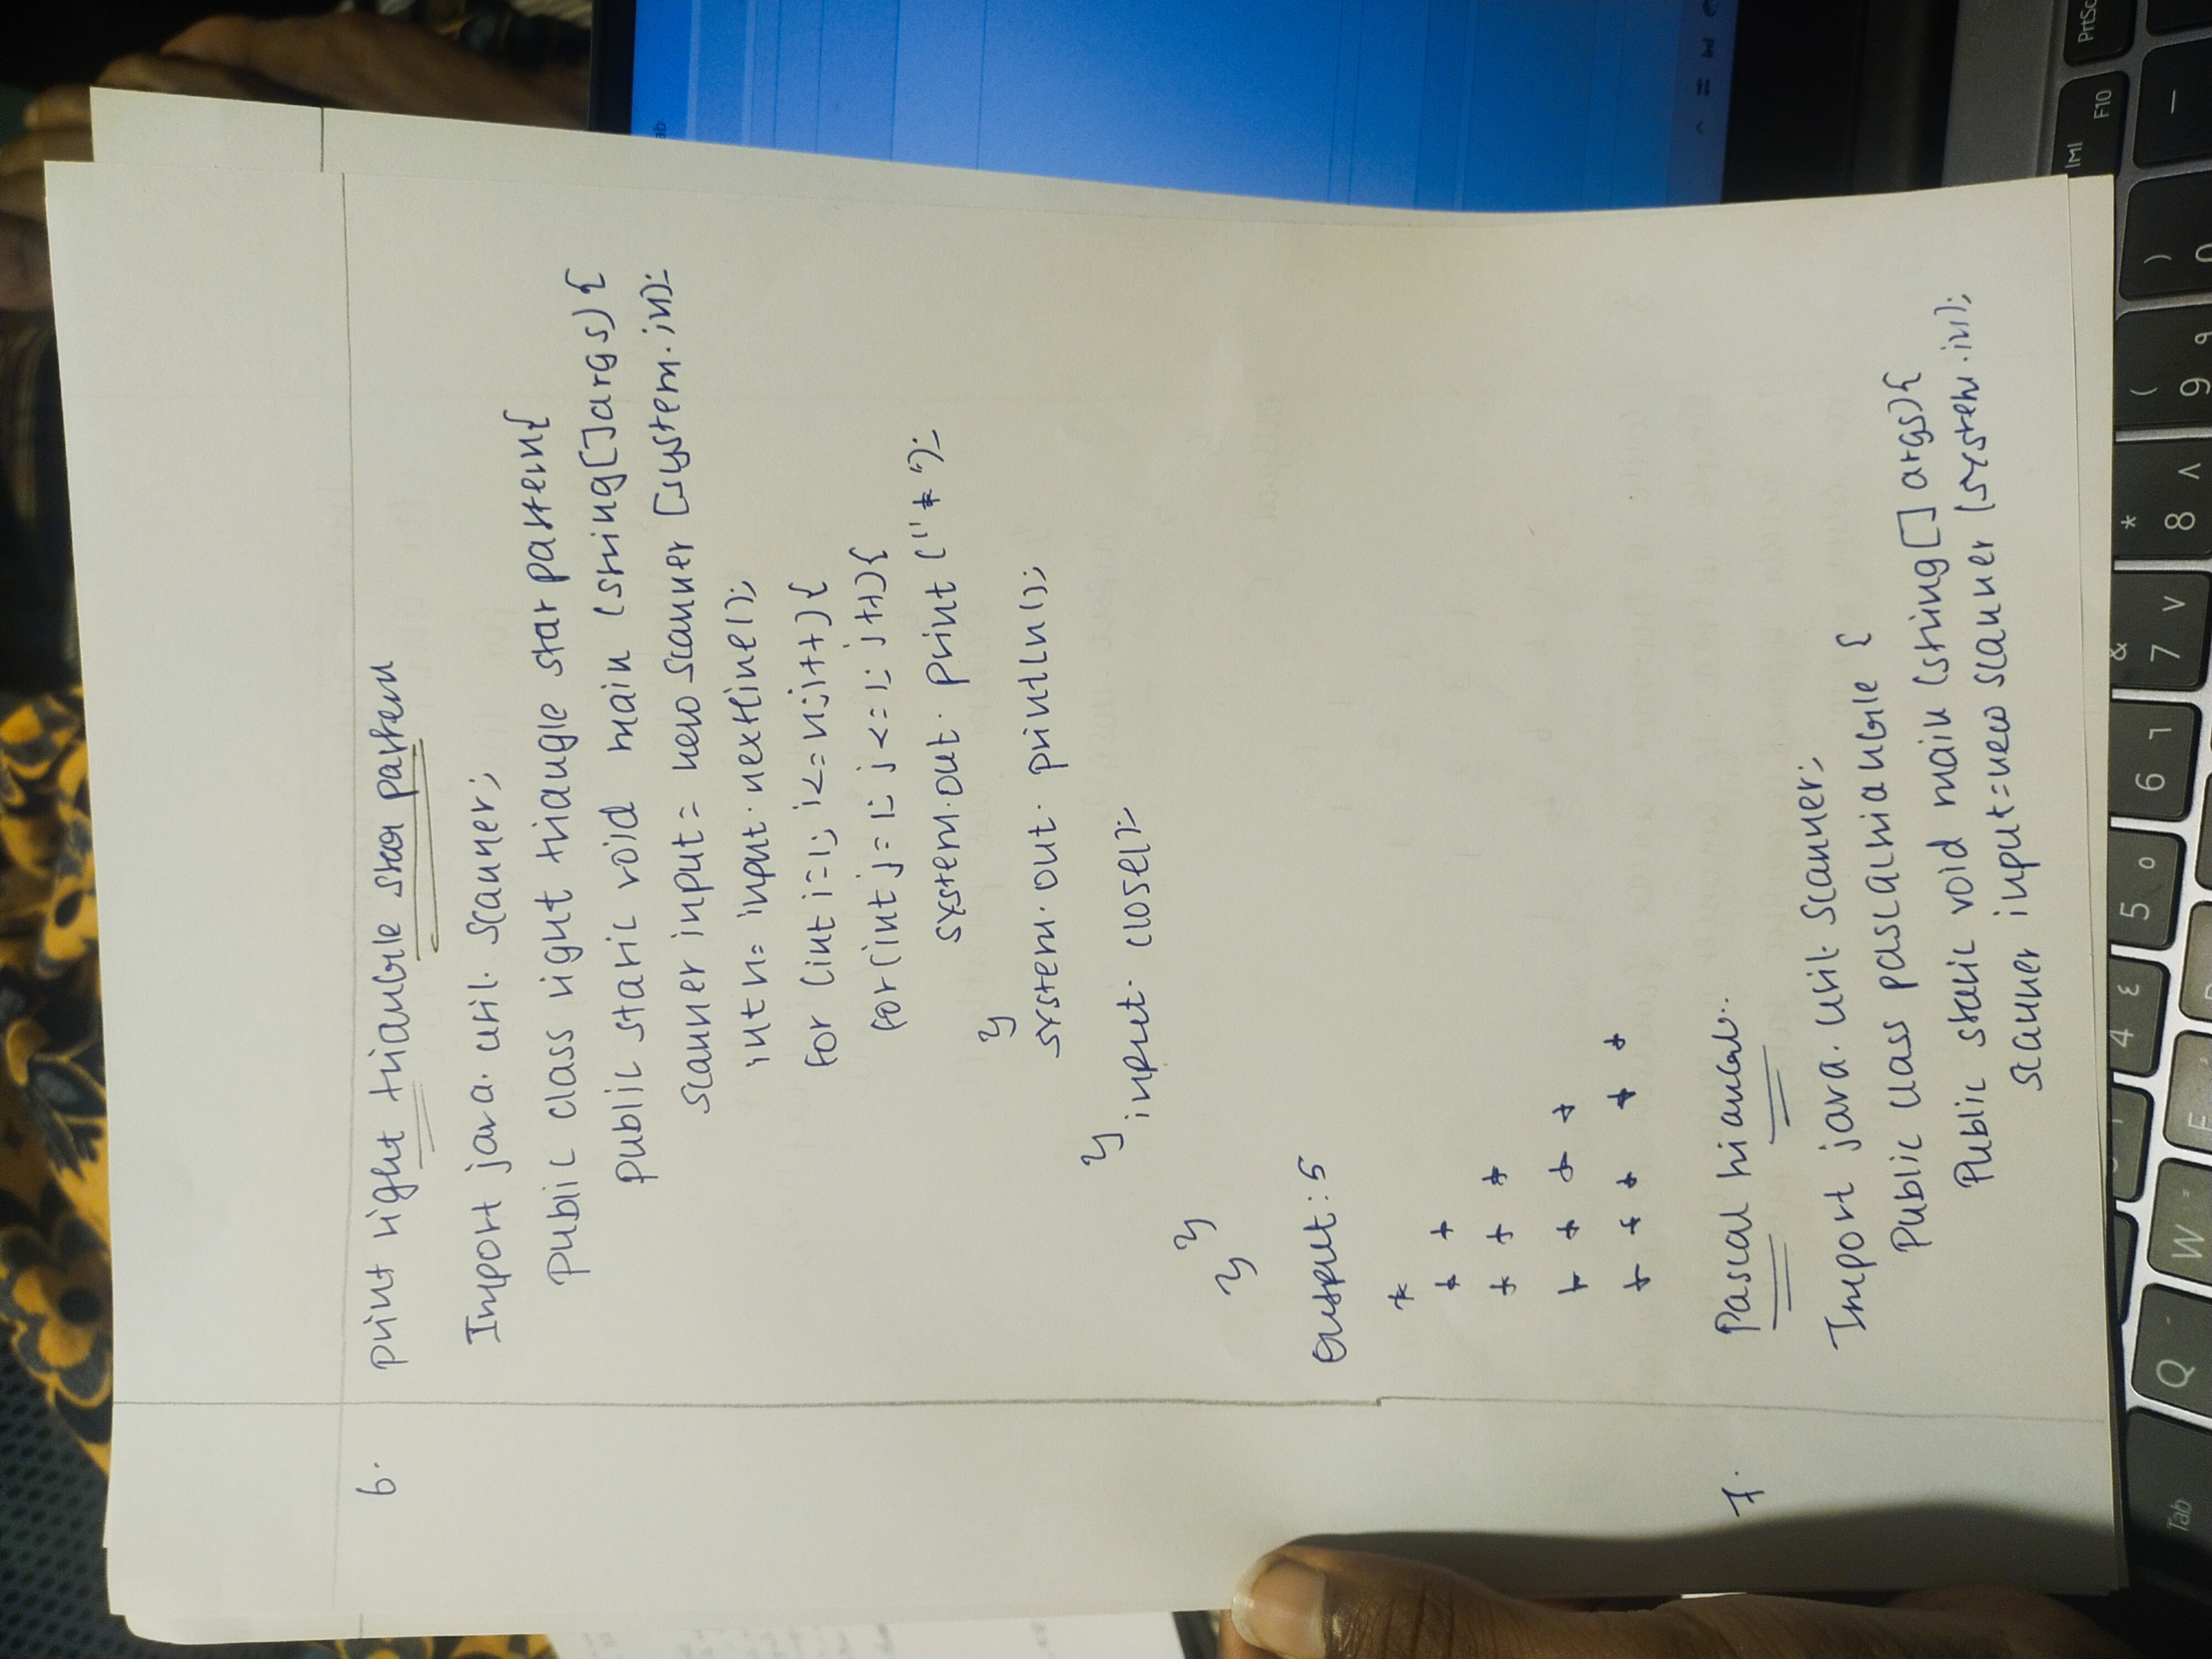 6. print right triangle star pattern
Import java. util. scanner;
public class right triangle star pattern{
public static void main (string[]args){
scanner input= new scanner [system.in);
int n= input.nextline();
for (int i=1; i<=n;i++){
for(int j=1; j<=1; j++){
system.out. print ("*");
}
system.out. println();
}
input. close();
}
}
Output: 5
*
* *
* * *
* * * *
* * * * *
7. Pascal triangle..
Import java. util. scanner;
Public class pascaltriangle {
Public static void main (string[] args){
scanner input=new scanner (system.in);
ab
Tab
Q
W
E
4 ٤
5 ٥
6 ٦
& 7 ٧
* 8 ٨
( 9 ٩
) 0
F10
PrtSc